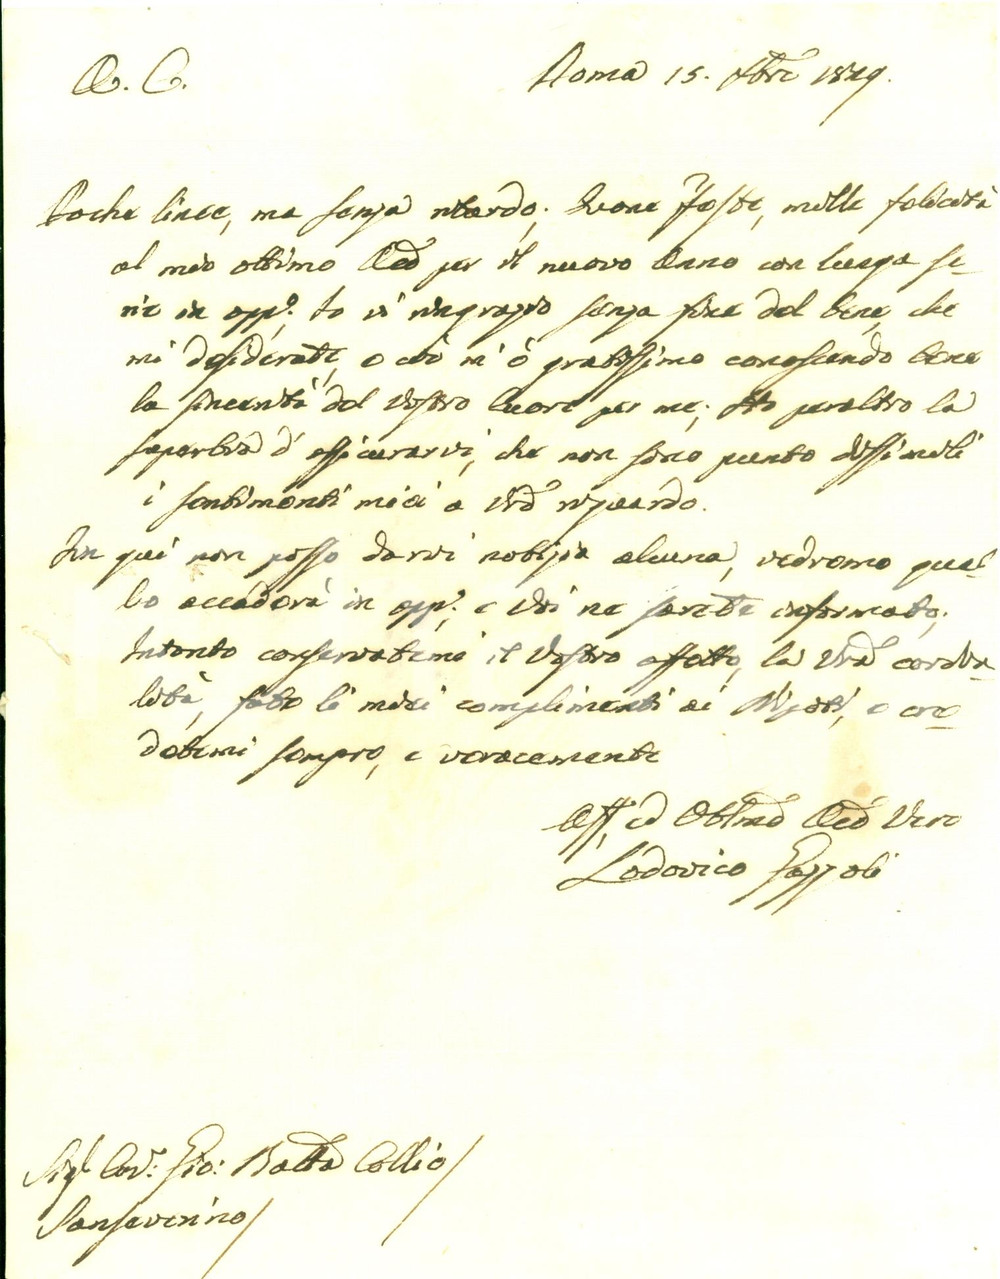 A. C.
Roma 15. Xbre 1829.
Poche linee, ma senza ritardo. Buone Feste, mille felicità
al mio ottimo  per il nuovo Anno con lunga se-
rie in app.o Io vi ringrazio senza fine del bene, che
mi desiderate, e ciò m'è gratissimo conoscendo bene
la sincerità del Vostro Cuore per me; Ho peraltro la
superbia d'assicurarvi, che non sono punto dissimili
i sentimenti miei a Vro riguardo.
Fin qui non posso darvi notizia alcuna, vedremo quel-
lo accaderà in app.o e Voi ne sarete informato.
Intanto conservatemi il Vostro affetto, la Vra cordia-
lità, fate li miei complimenti ai Nipoti, e cre-
detemi sempre, e veracemente
Aff. ed Obbmo  Vero
Lodovico Gazzoli
Sigr Cav.r Gio: Batta Collio/
Sanseverino/